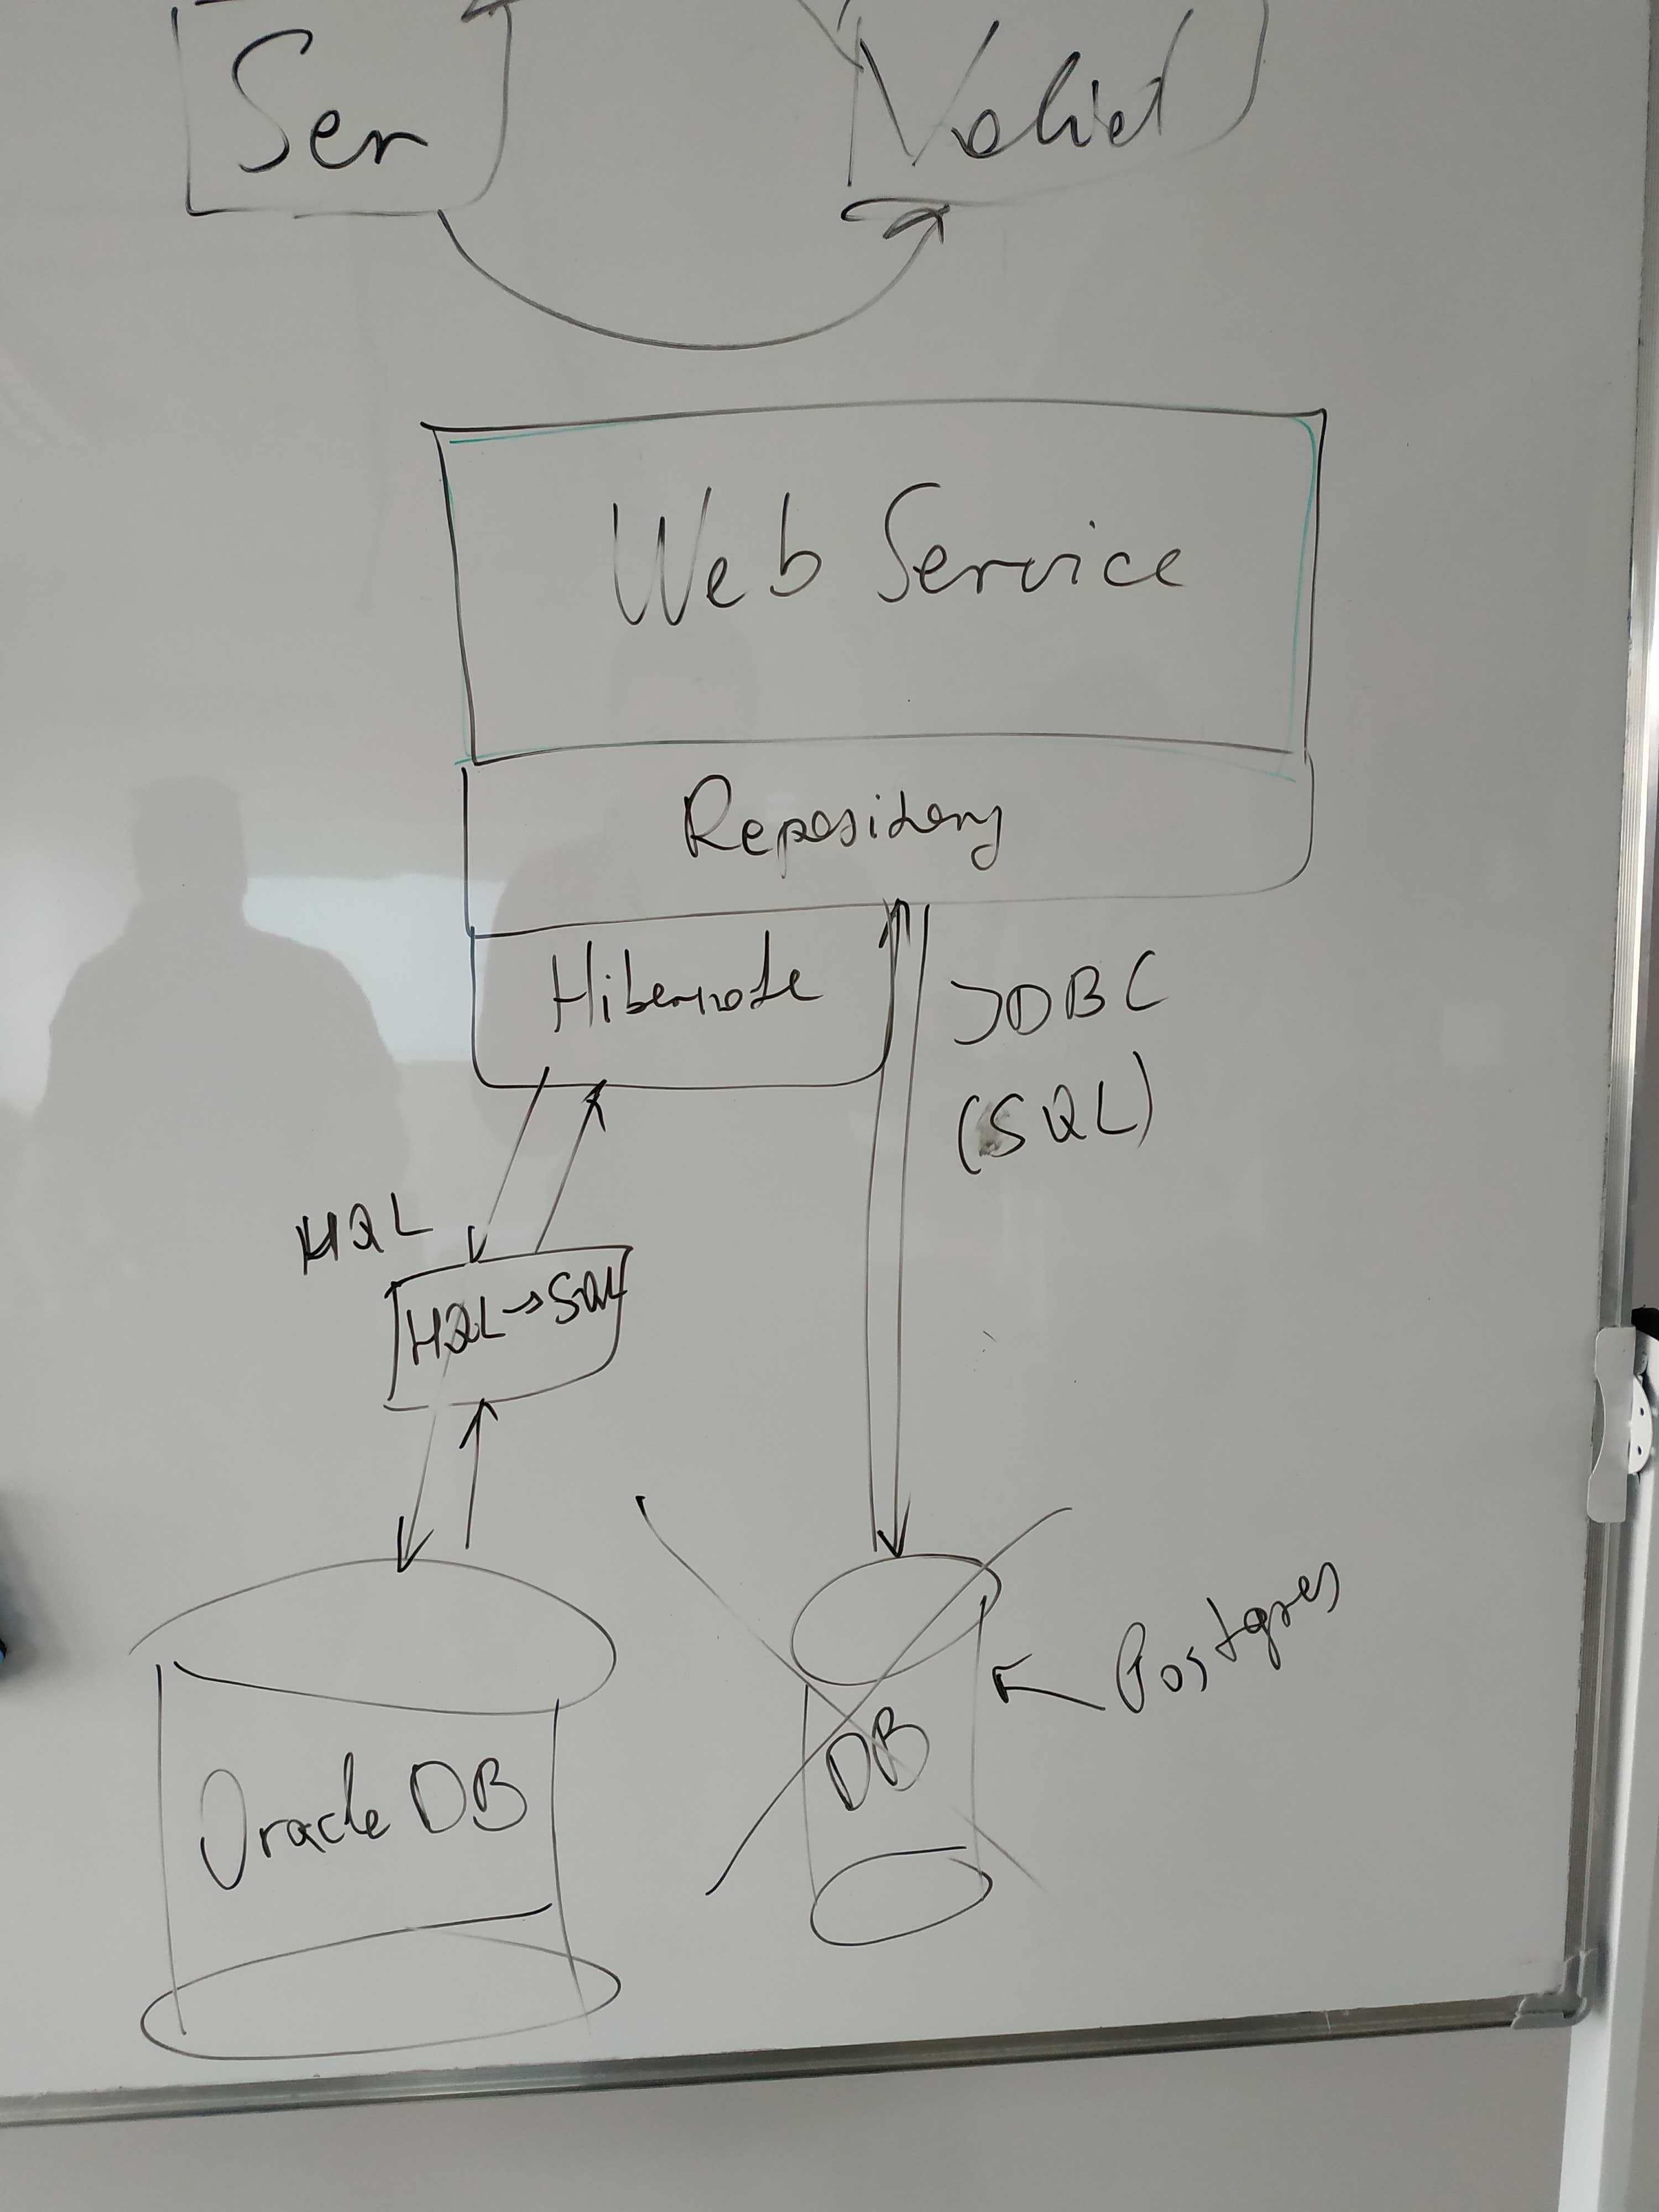 Ser
Valid
Web Service
Repository
Hibernate
JDBC
(SQL)
HQL
HQL→SQL
Oracle DB
DB
Postgres